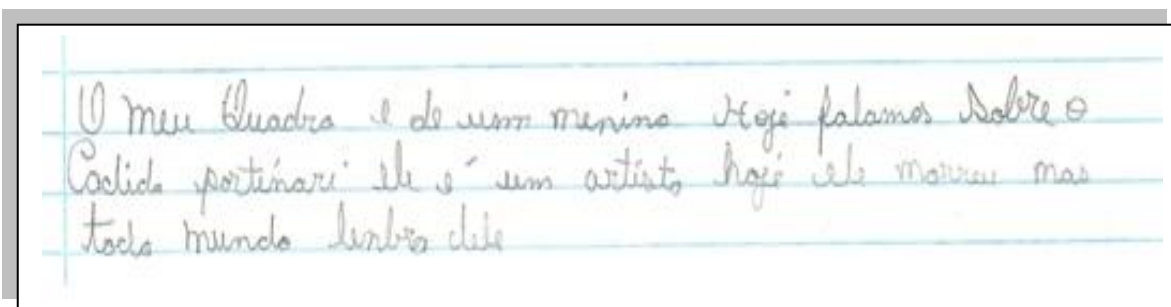 O meu Quadro e de umm menino Hoje falamos Sobre o
Cadido portinari ele é um artista hoje ele morreu mas
todo mundo lenbra dele